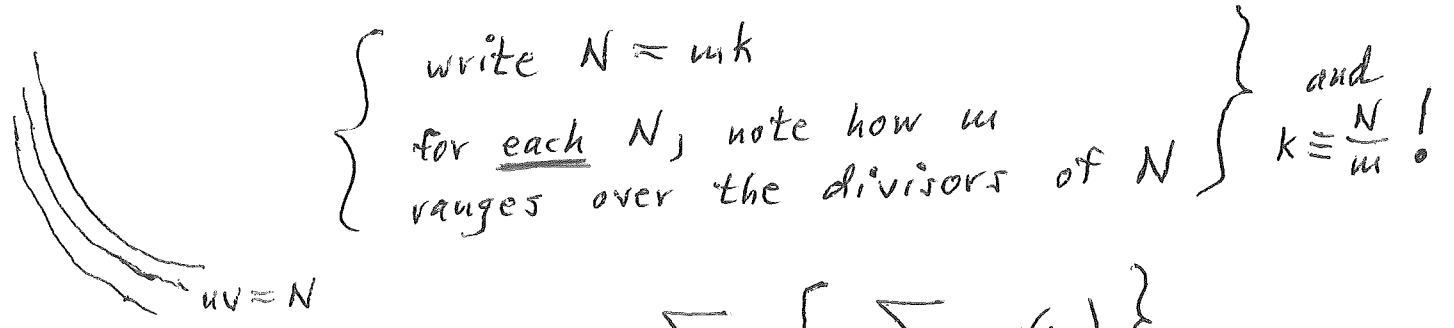 write N = mk
for each N, note how m
ranges over the divisors of N
and
k ≡ N/m !
uv = N